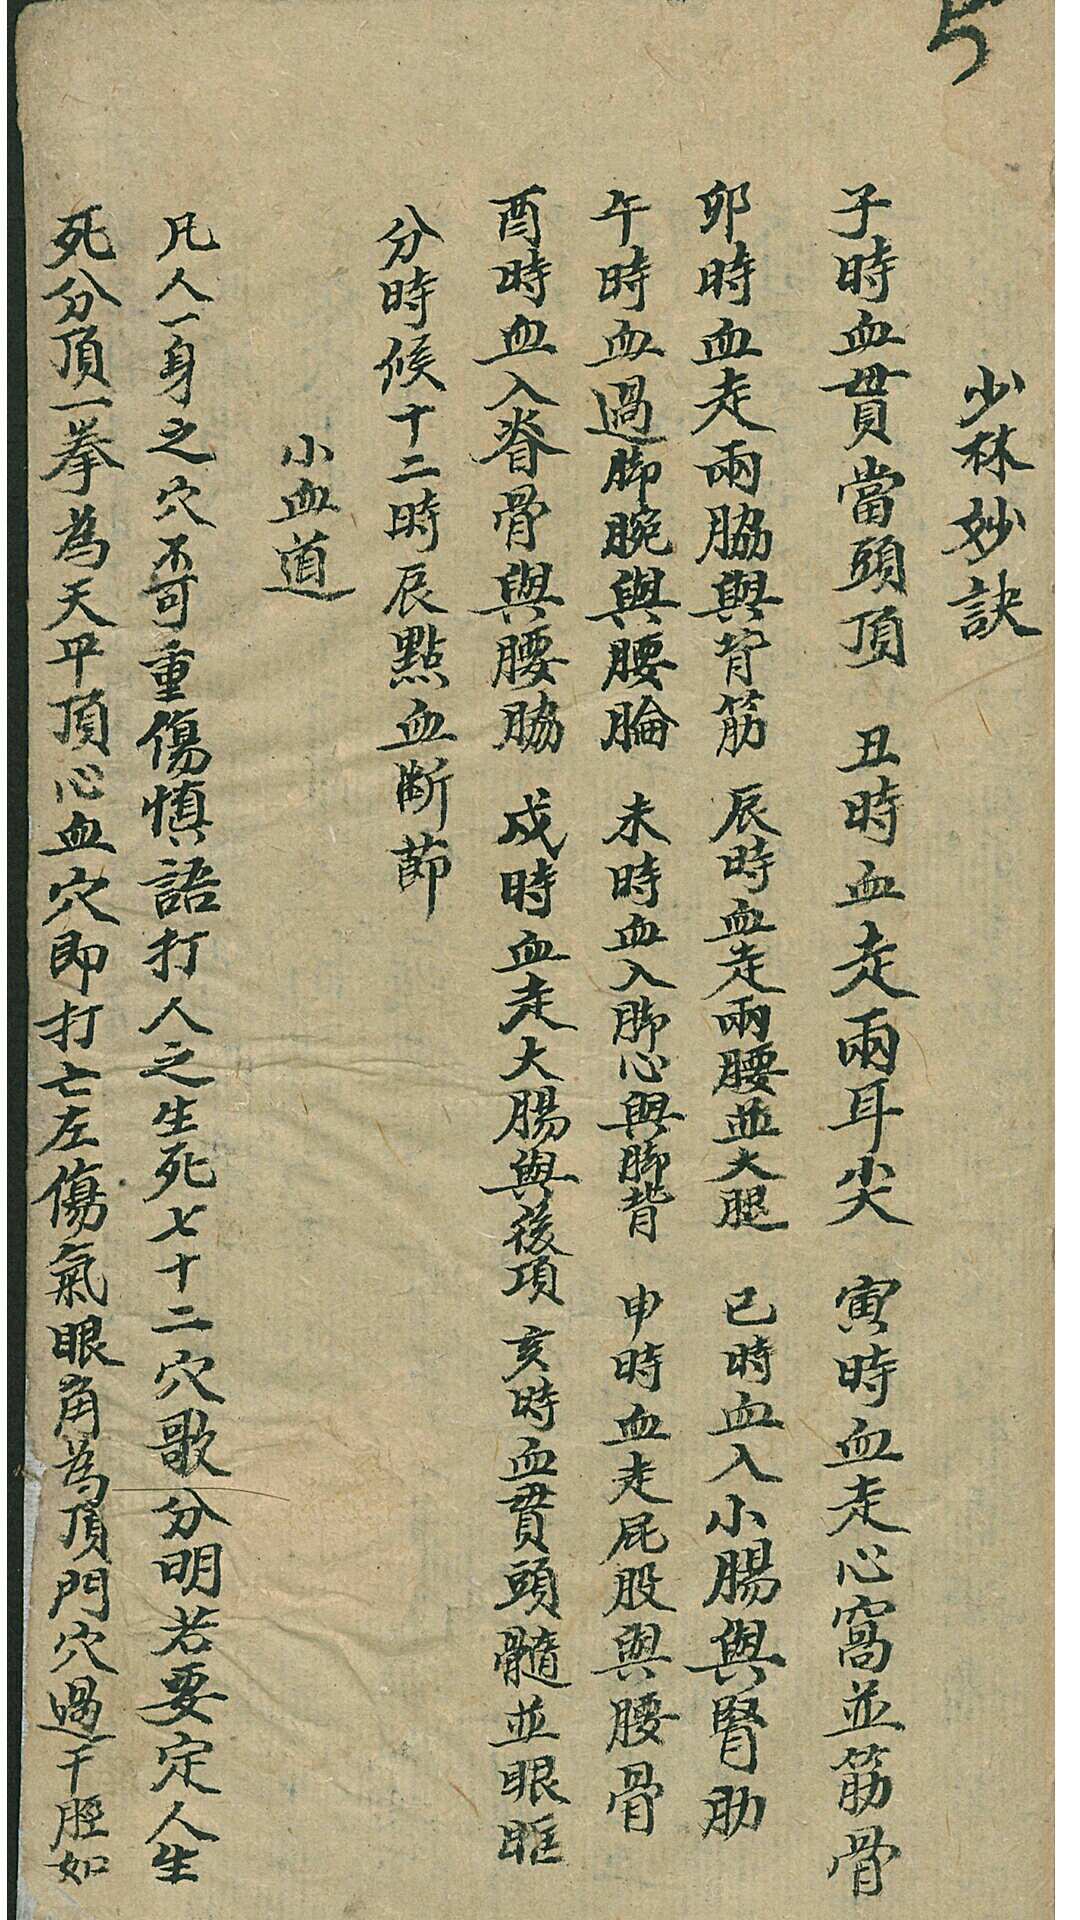 5
少林妙訣
子時血貫當頭頂 丑時血走兩耳尖 寅時血走心窩並筋骨
卯時血走兩脇與背筋 辰時血走兩腰並大腿 已時血入小腸與腎肋
午時血過脚腕與腰腀 未時血入脚心與脚背 申時血走屁股與腰骨
酉時血入脊骨與腰脇 戍時血走大腸與後項 亥時血貫頭髓並眼眶
分時候十二時辰點血斷節
小血道
凡人一身之穴不可重傷慎語打人之生死七十二穴歌分明若要定人生
死分頂一拳為天平頂心血穴即打亡左傷氣眼角為頂門穴過千脛如